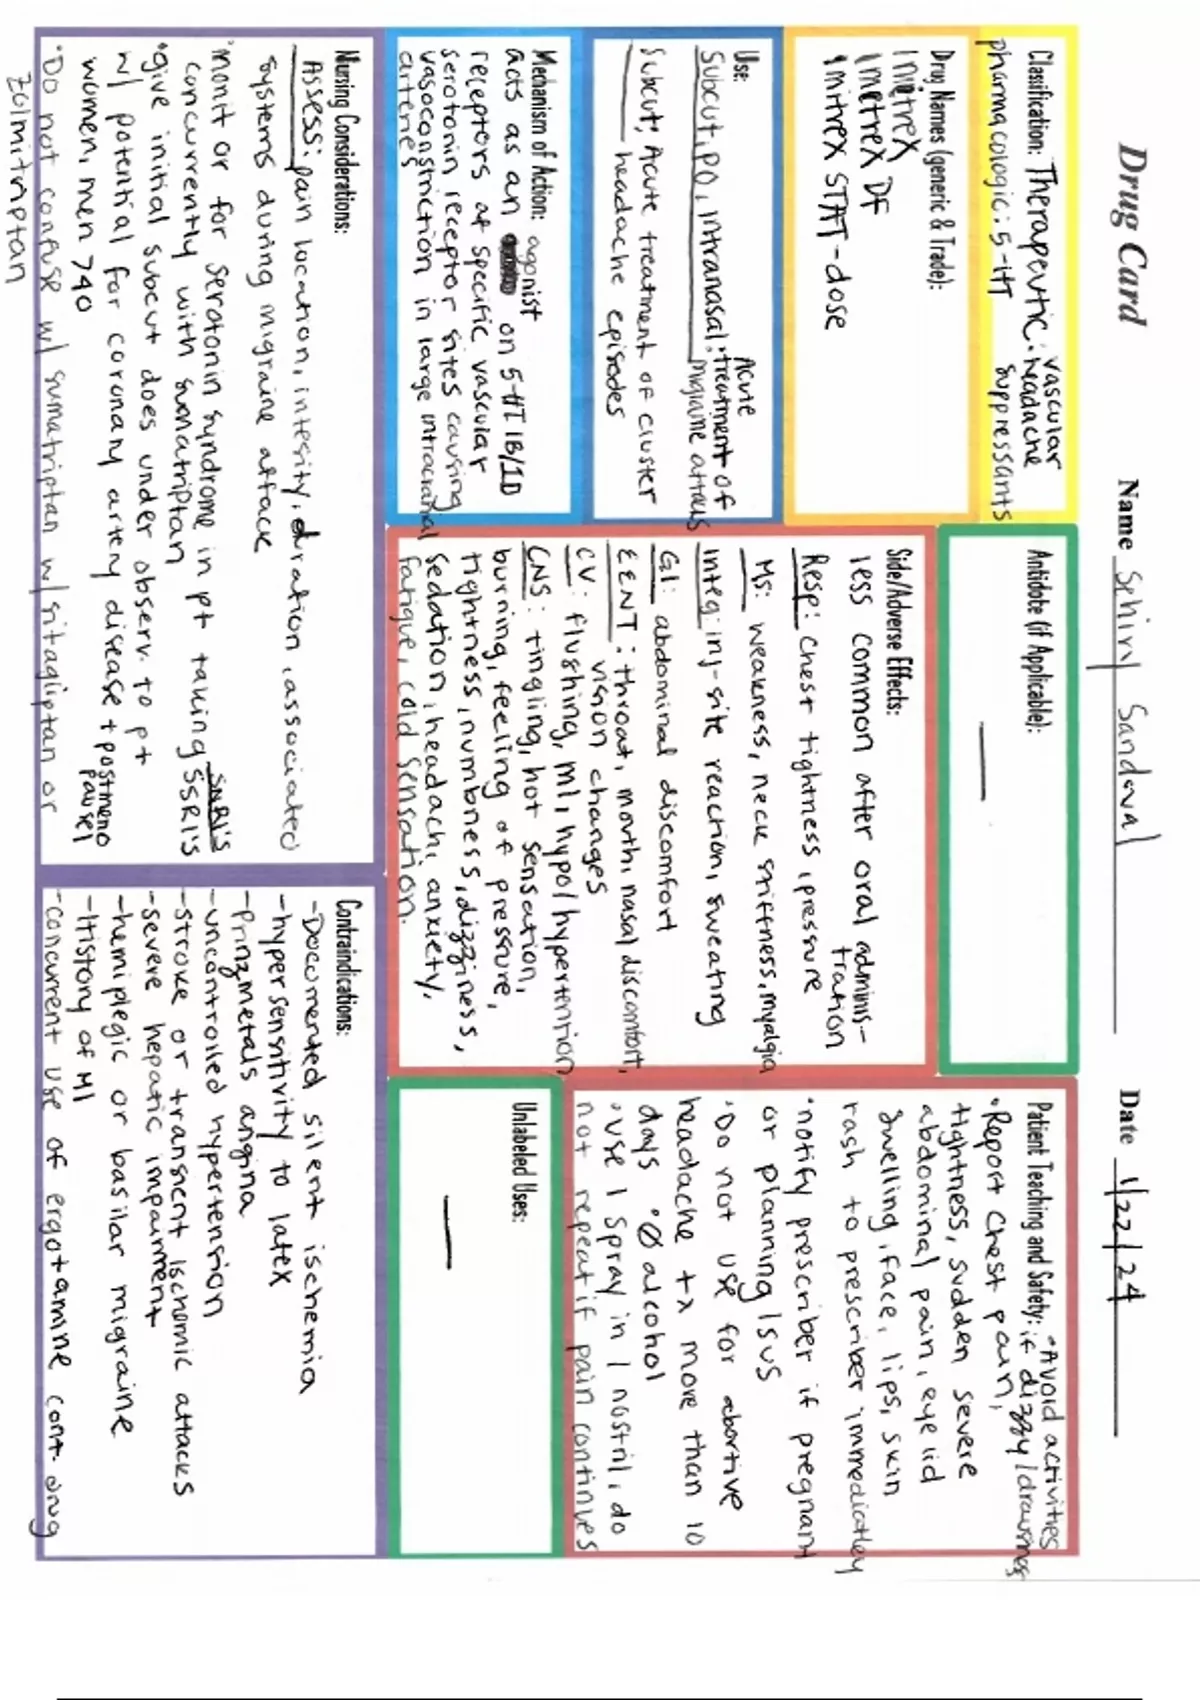 Drug Card
Name Sehiry Sandoval
Date 1/22/24
Classification: Therapeutic: vascular
headache
pharmacologic: 5-HT suppressants
Drug Names (generic & Trade):
Imitrex
Imetrex DF
Imitrex STAT-dose
Use:
Subcut, PO, intranasal: Acute
treatment of
migraine attacks
Subcut; Acute treatment of cluster
headache episodes
Mechanism of Action: agonist
acts as an on 5-HT 1B/1D
receptors at specific vascular
serotonin receptor sites causing
vasoconstriction in large intracranial
arteries
Nursing Considerations:
Assess: pain location, intesity, duration, associated
systems during migraine attack
•monitor for serotonin syndrome in pt taking SNRI's
SSRI's
concurrently with sumatriptan
•give initial subcut does under observ. to pt
w/ potential for coronary artery disease + postmeno
pausel
women, men >40
•Do not confuse w/ sumatriptan w/ sitagliptan or
zolmitriptan
Antidote (if Applicable):
—
Side/Adverse Effects:
less common after oral adminis-
tration
Resp: chest tightness, pressure
MS: weakness, neck stiffness, myalgia
Integ: inj-site reaction, sweating
GI: abdominal discomfort
EENT: throat, mouth, nasal discomfort,
vision changes
CV: flushing, MI, hypo/hypertention
CNS: tingling, hot sensation,
burning, feeling of pressure,
tightness, numbness, dizziness,
sedation, headach, anxiety,
fatigue, cold sensation.
Patient Teaching and Safety: •Avoid activities
if dizzy/drawsiness
•Report chest pain,
tightness, sudden severe
abdominal pain, eyelid
swelling, face, lips, skin
rash to prescriber immediatley
•notify prescriber if pregnant
or planning/sus
•Do not use for abortive
headache tx more than 10
days •Ø alcohol
•use 1 spray in 1 nostril, do
not repeat if pain continues
Unlabeled Uses:
—
Contraindications:
-Documented silent ischemia
-hypersensitivity to latex
-Prinzmetals angina
-uncontrolled hypertension
-stroke or transient ischemic attacks
-severe hepatic impairment
-hemiplegic or basilar migraine
-History of MI
-concurrent use of ergotamine cont. drug